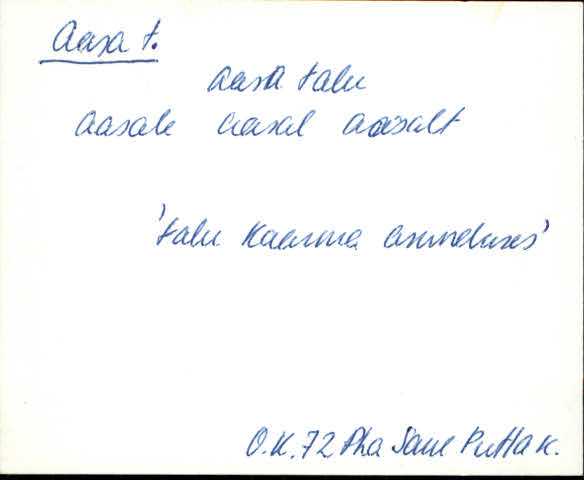 Aasa t.
aasa talu
aasale aasal aasalt
'talu Kaarma asunduses'
O.K. 72 Pha Saue Puttak.